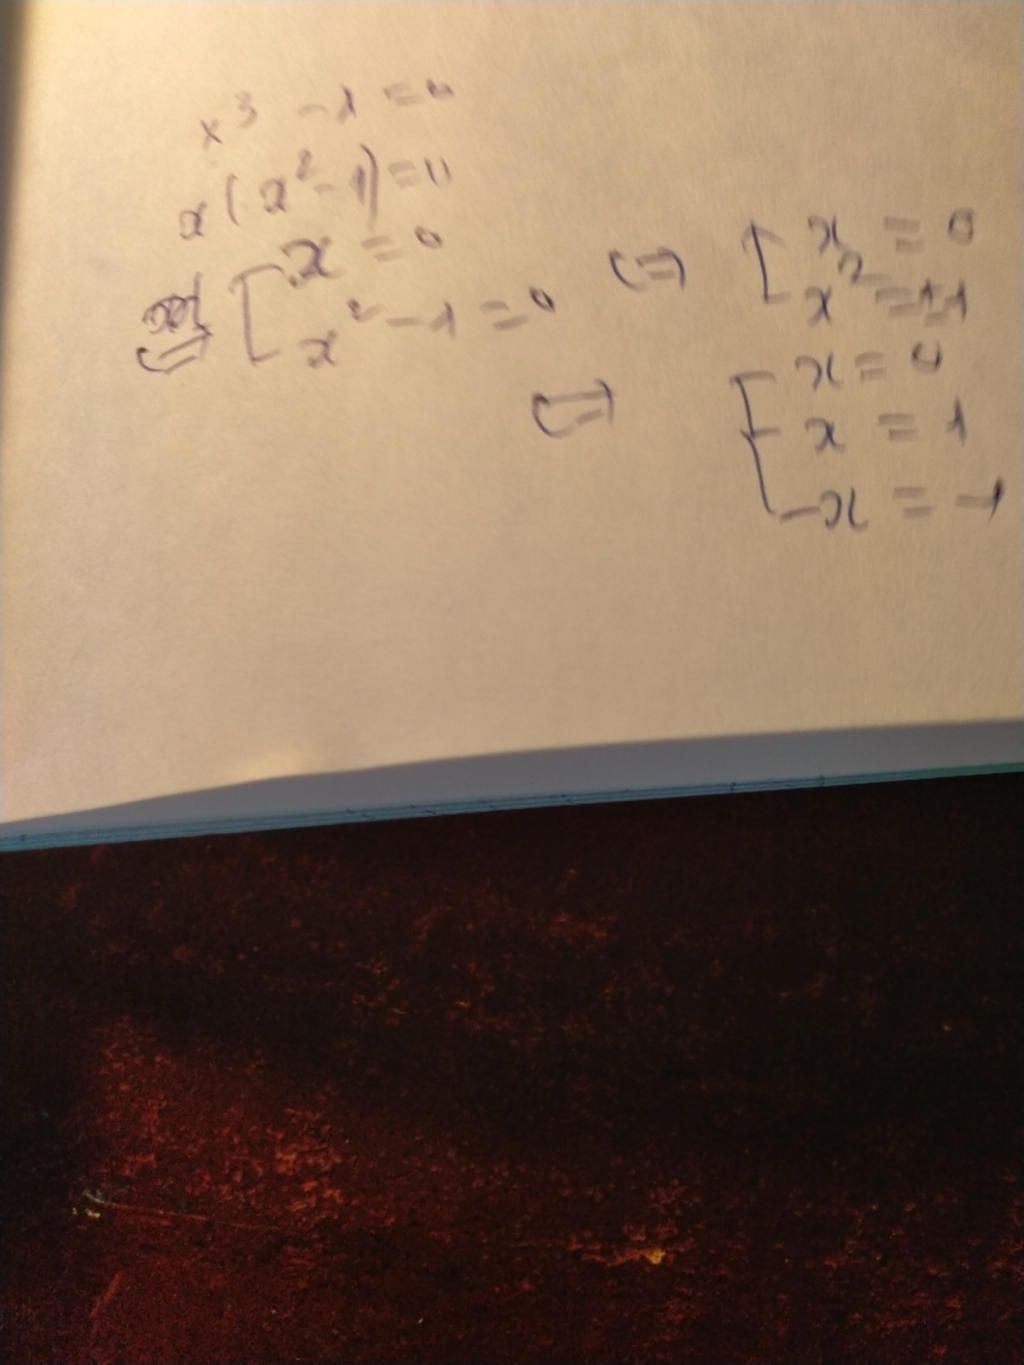 x³ - 1 = 0
x(x² - 1) = 0
⇔ [ x = 0
x² - 1 = 0
⇔ [ x = 0
x² = ±1
⇔ [ x = 0
x = 1
-x = -1